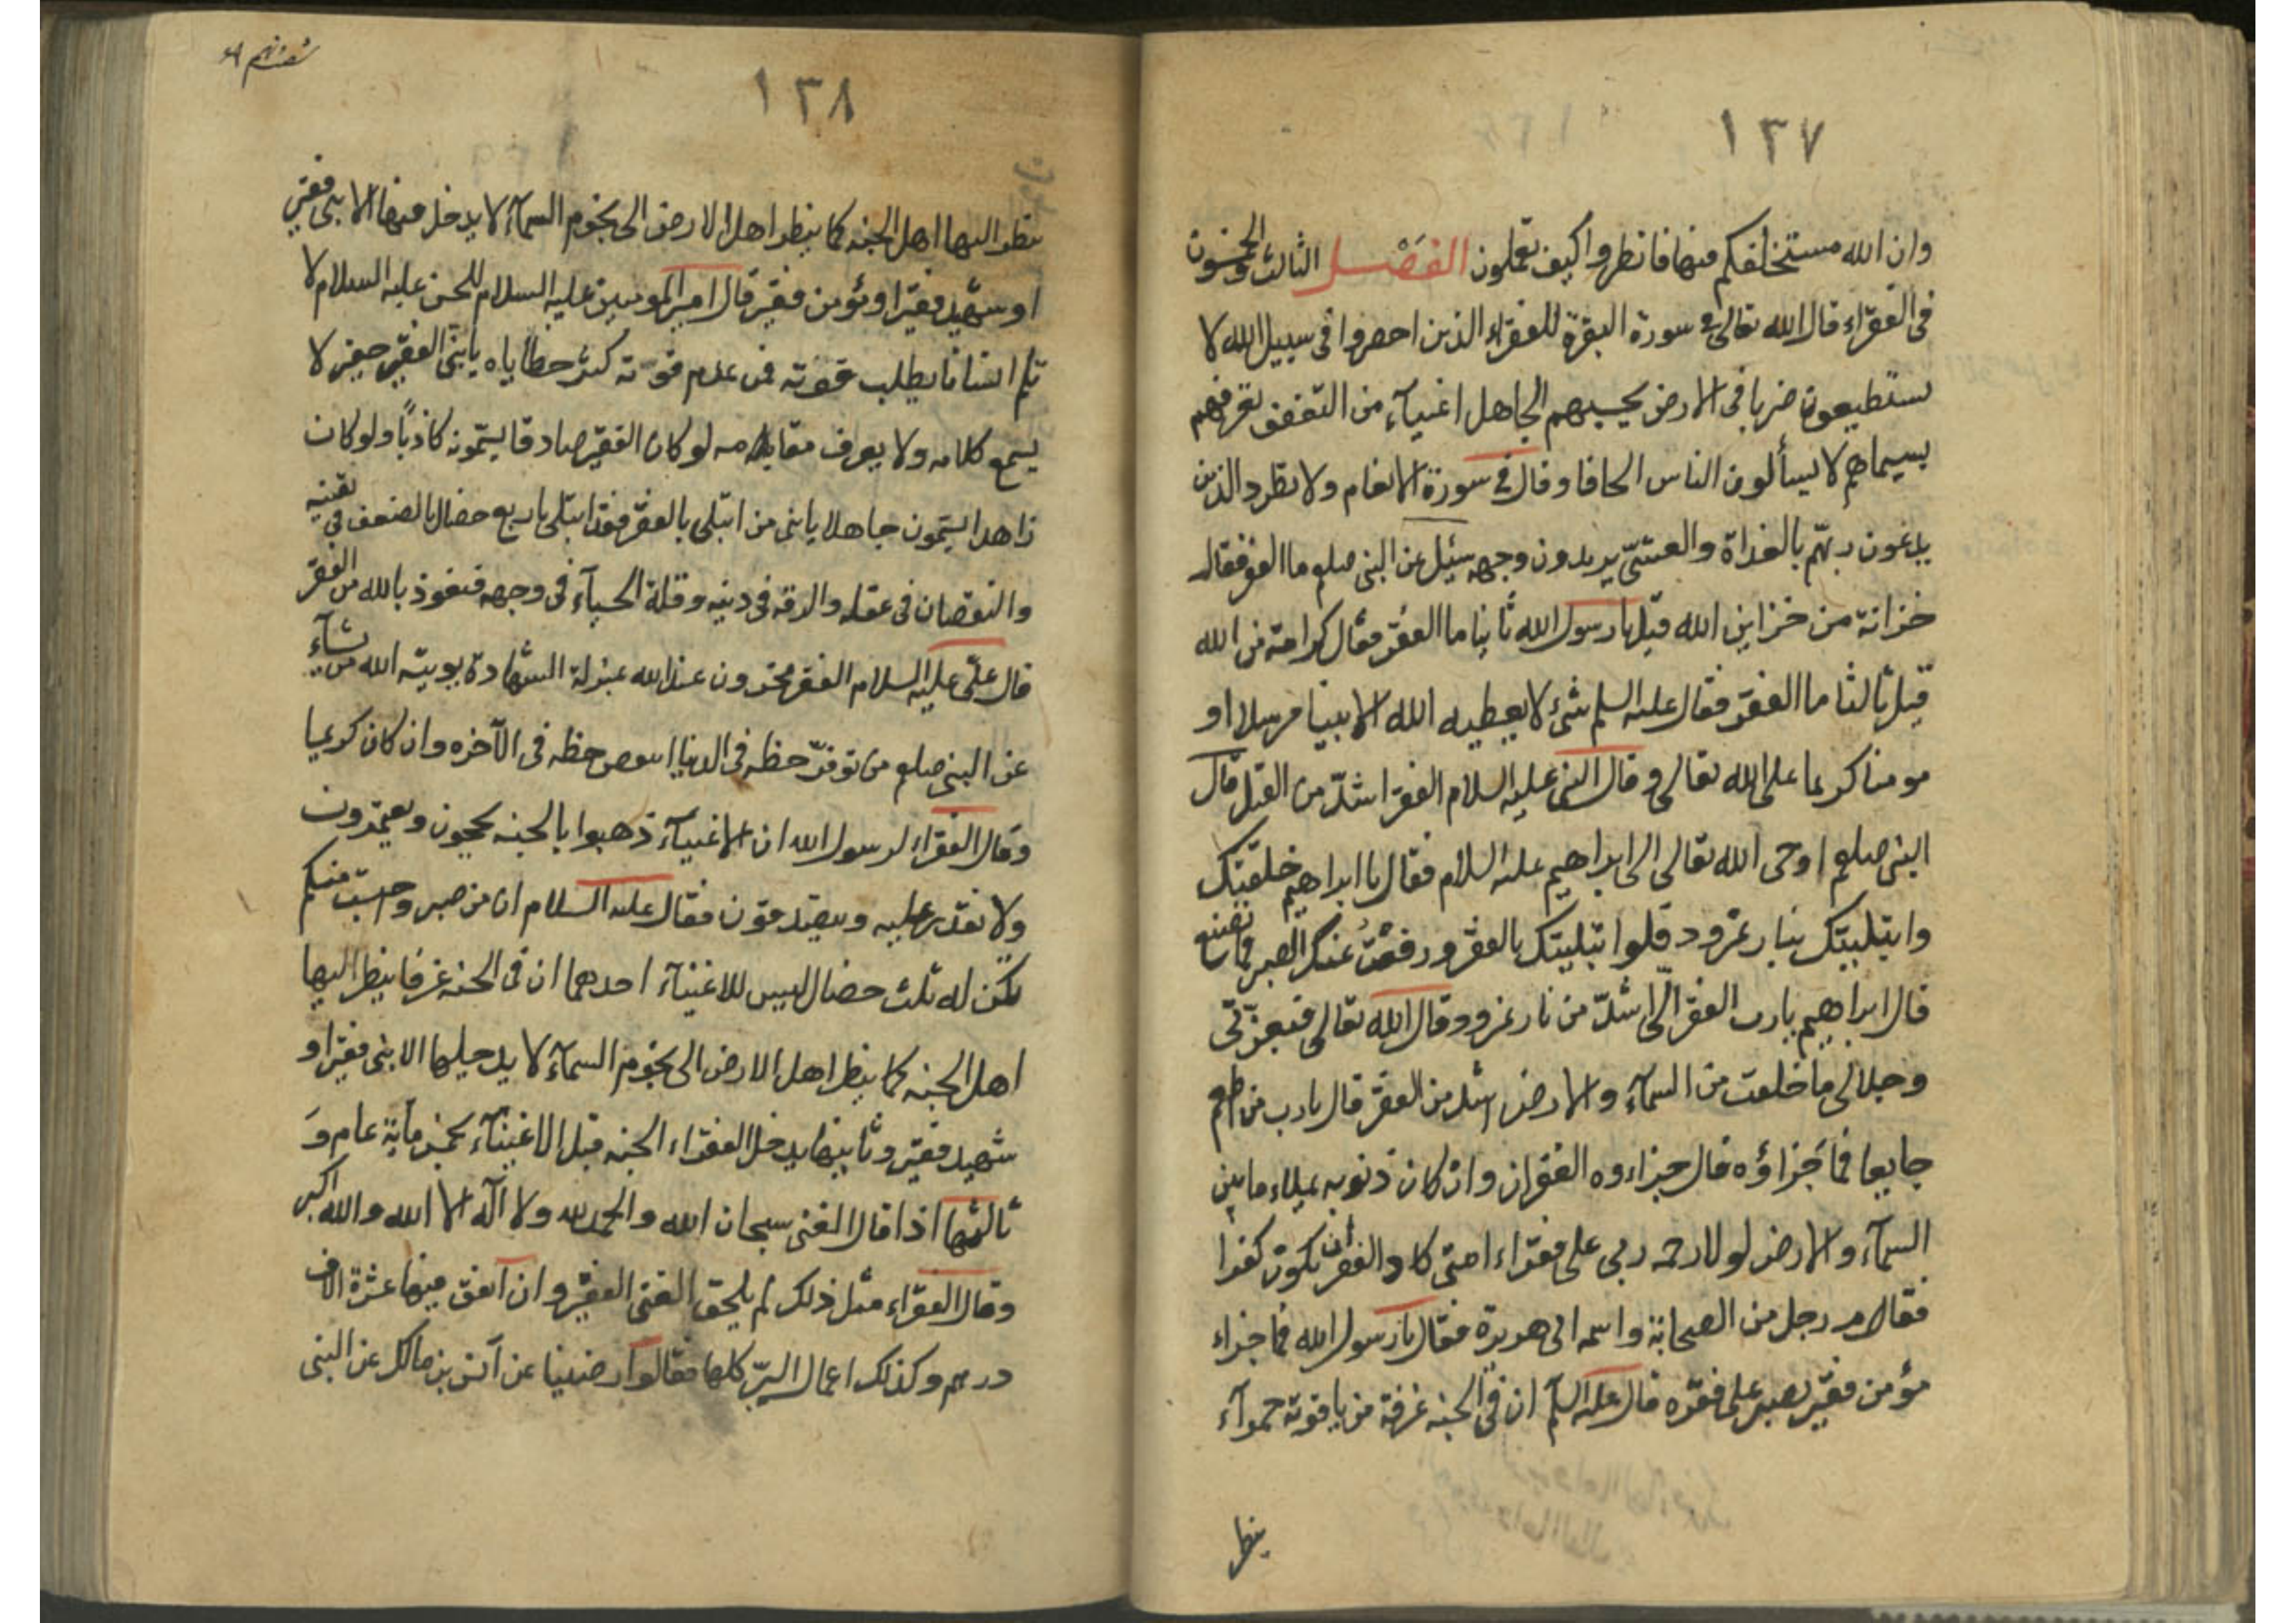 ١٣٧
وان الله مستخلفكم فيها فانظروا كيف تعملون الفصل الثالث والخمسون
فى الفقراء قال الله تعالى فى سورة البقرة للفقراء الذين احصروا فى سبيل الله لا
يستطيعون ضربا فى الارض يحسبهم الجاهل اغنيآء من التعفف تعرفهم
بسيماهم لا يسألون الناس الحافا وقال فى سورة الانعام ولا تطرد الذين
يدعون ربهم بالغداة والعشىّ يريدون وجهه سئل عن النبى صلعم ما الفقر فقال
خزانة من خزاين الله قيل يا رسول الله ثانيا ما الفقر فقال كرامة من الله
قيل ثالثا ما الفقر فقال عليه السلم شئ لا يعطيه الله الا نبيا مرسلا او
مومنا كريما على الله تعالى وقال النبى عليه السلام الفقر اشدّ من القتل قال
النبى صلعم اوحى الله تعالى الى ابراهيم عليه السلام فقال يا ابراهيم خلقتك
وابتليتك بنار نمرود فلو ابتليتك بالفقر ورفعت عنك الصبر فما تصنع
قال ابراهيم يا رب الفقر الىّ اشدّ من نار نمرود قال الله تعالى فبعزتى
وجلالى ما خلقت من السمآء والارض اشد من الفقر قال يا رب من اطعم
جايعا فما جزاؤه قال جزاءوه الغفران وان كان ذنوبه يملاء ما بين
السمآء والارض لولا رحمه ربى على فقراء امتى كاد الفقر ان يكون كفرا
فقام رجل من الصحابة واسمه ابى هريرة فقال يا رسول الله فما جزاء
مؤمن فقير يصبر على فقره قال عليه السلم ان فى الجنه غرفة من ياقوته حمرآء
ينظر
١٣٨
ينظر اليها اهل الجنه كما ينظر اهل الارض الى نجوم السمآء لا يدخل فيها الا نبى فقير
او شهيد فقير او مؤمن فقير قال امير المومنين عليه السلام للحسن عليه السلام لا
تلم انسانا يطلب قوته فمن عدم قوته كثر خطاياه يا بنىّ الفقير حقير لا
يسمع كلامه ولا يعرف مقامه لو كان الفقير صادقا يسمّونه كاذبًا ولو كان
زاهدا يسمون جاهلا يا بنى من ابتلى بالفقر فقد ابتلى باربع خصال بالضعف فى يقينه
والنقصان فى عقله والدقه فى دينه وقلة الحيآء فى وجهه فنعوذ بالله من الفقر
قال علىّ عليه السلام الفقر مخزون عند الله بمنزلة الشهادة يوتيه الله من يشآء
عن النبى صلعم من توفرّ حظه فى الدنيا انتقص حظه فى الآخره وان كان كريما
وقال الفقراء لرسول الله ان الاغنيآء ذهبوا بالجنه يحجون ويعتمرون
ولا نقدر عليه ويتصدقون فقال عليه السلام ان من صبر واحتسب منكم
تكن له ثلث خصال ليس للاغنيآء احدهما ان فى الجنه غرفا ينظر اليها
اهل الجنه كما ينظر اهل الارض الى نجوم السمآء لا يدخلها الا نبى فقير او
شهيد فقير وثانيها يدخل الفقراء الجنه قبل الاغنيآء بخمسمأية عام وَ
ثالثها اذا قال الغنى سبحان الله والحمد لله ولا آله الا الله والله اكبر
وقال الفقراء مثل ذلك لم يلحق الغنى الفقير وان انفق فيها عشرة الاف
درهم وكذلك اعمال البرّ كلها فقالوا رضينا عن آنس بن مالك عن النبى